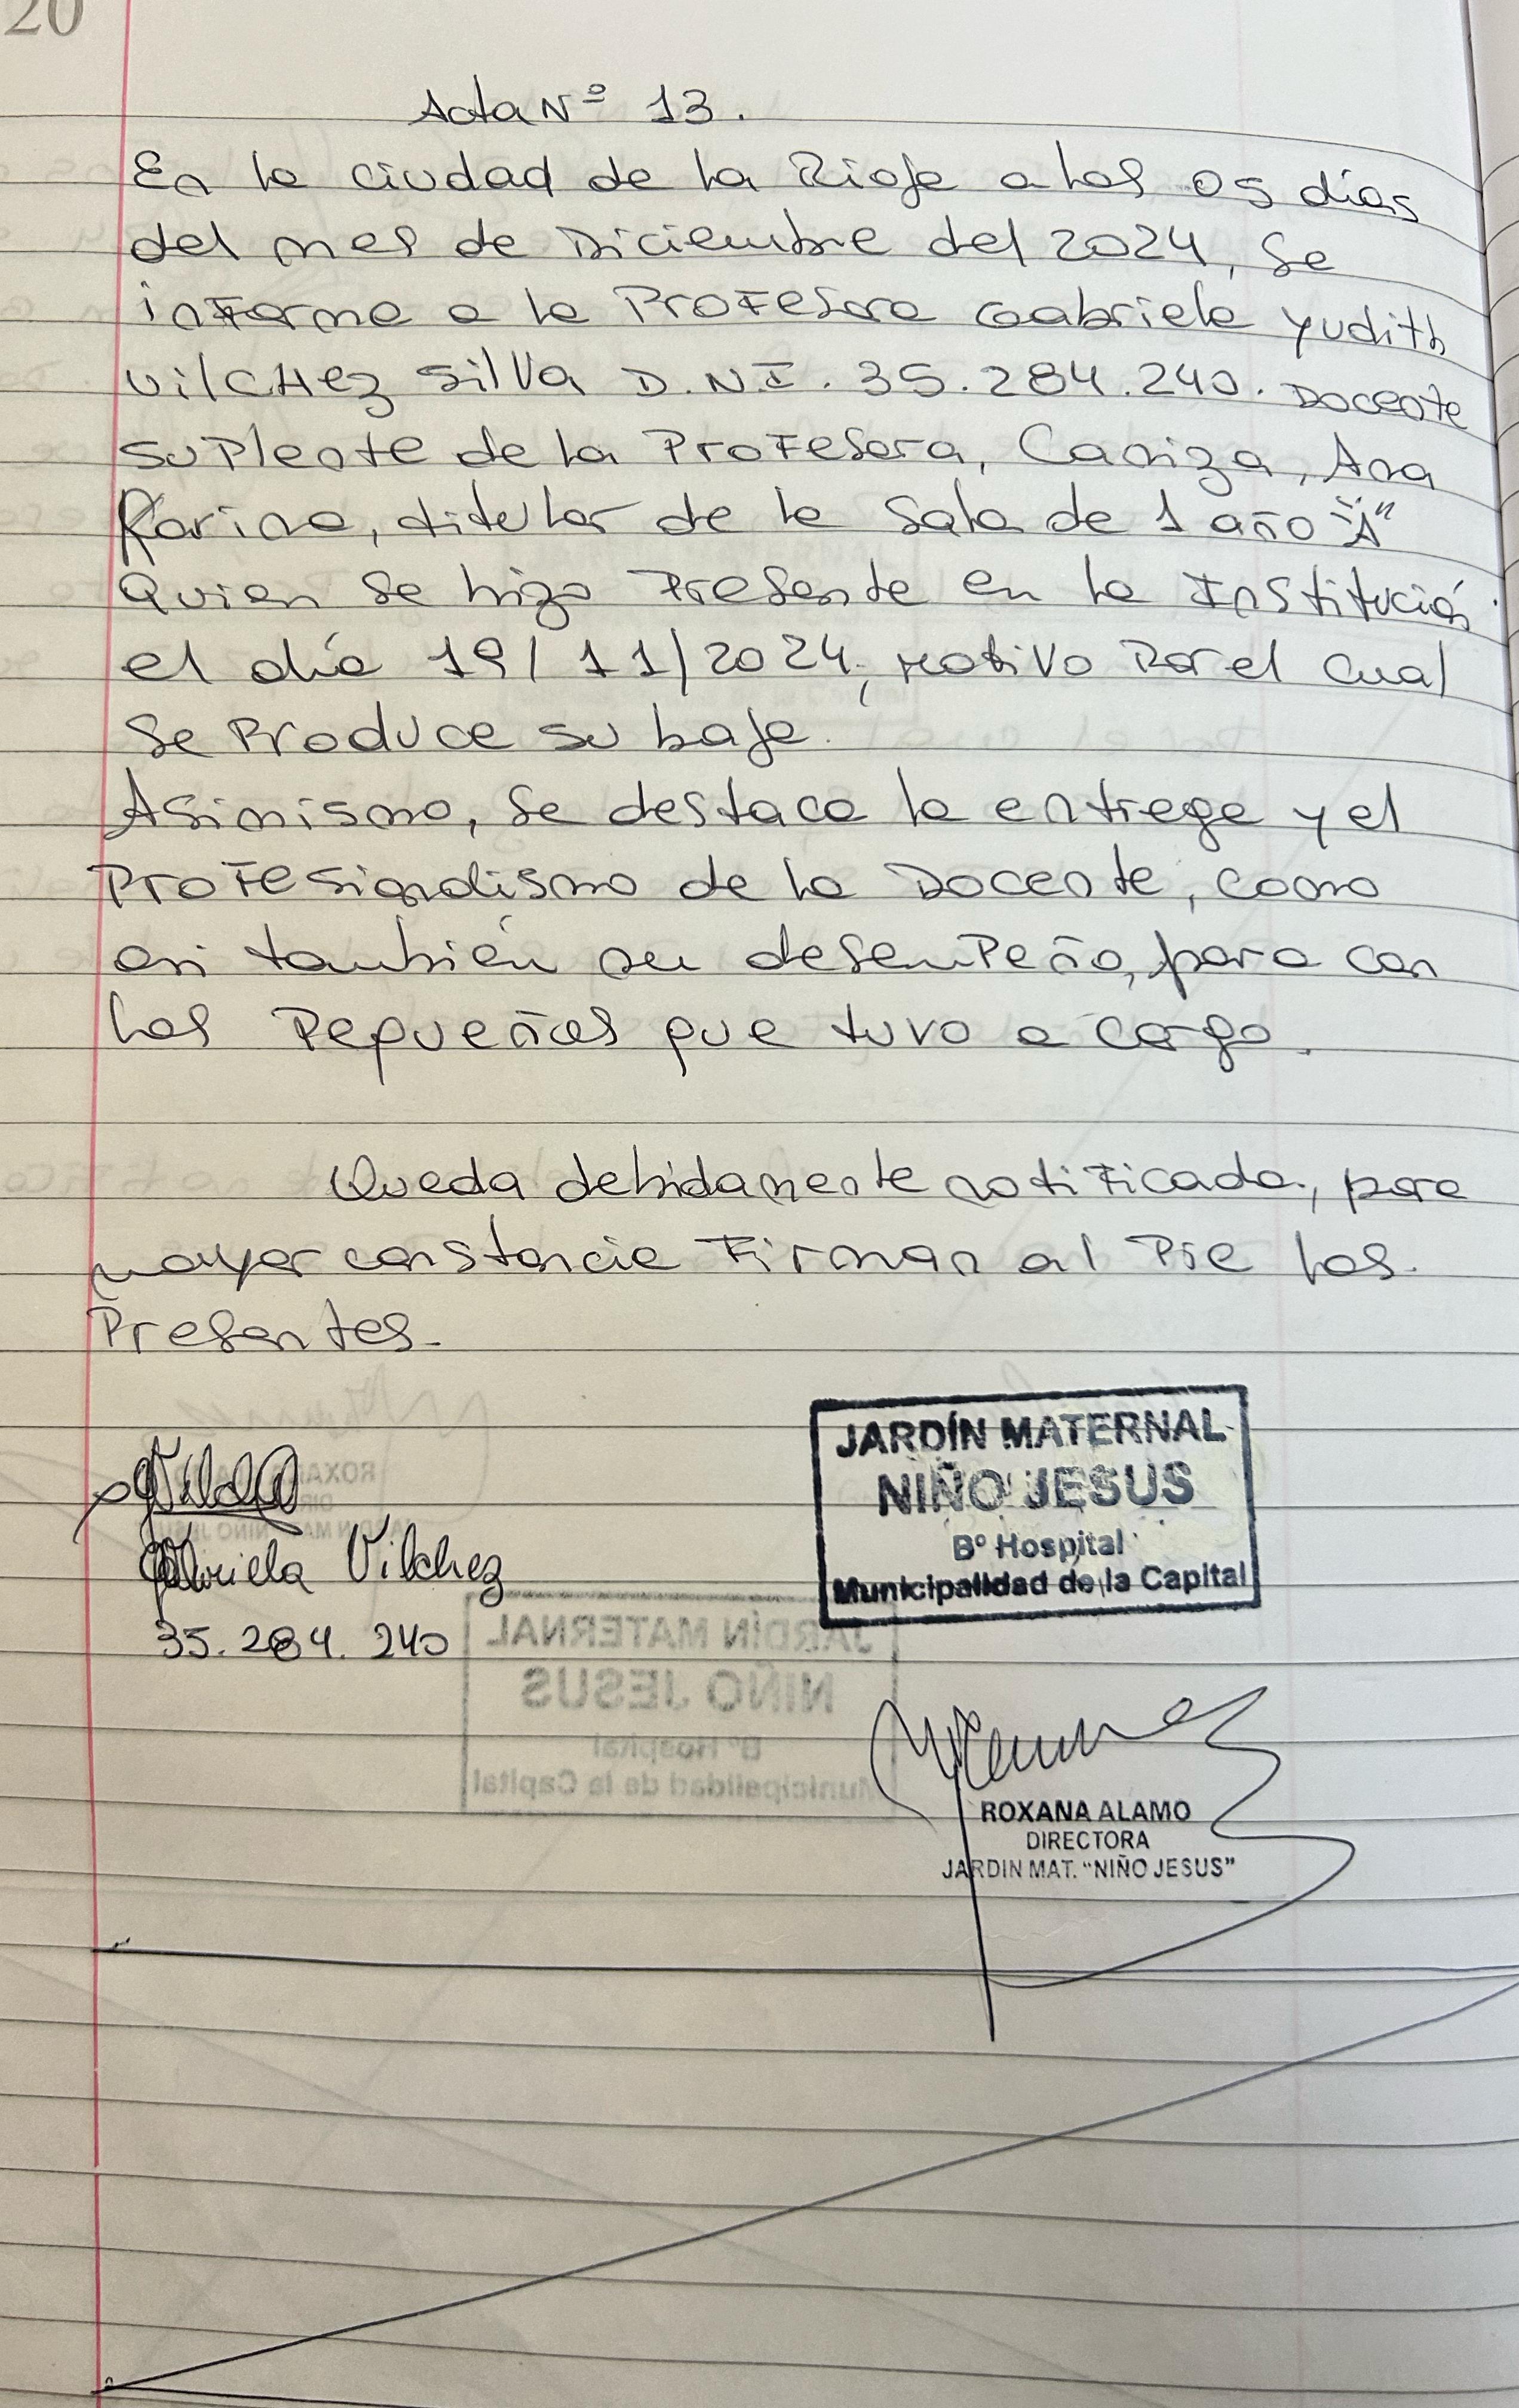 20
Acta Nº 13.
En la ciudad de La Rioja a los 05 días
del mes de Diciembre del 2024, se
informa a la Profesora Gabriela Yudith
Vilchez Silva D.N.I. 35.284.240. Docente
suplente de la Profesora, Caniza, Ana
Karina, titular de la Sala de 1 año "A"
Quien se hizo Presente en la Institución
el día 19/11/2024, motivo Por el cual
se Produce su baja.
Asimismo, se destaca la entrega y el
Profesionalismo de la Docente, como
asi también su desempeño, para con
los Pequeños que tuvo a cargo.
Queda debidamente notificada, para
mayor constancia Firman al Pie los
Presentes.
JARDÍN MATERNAL
NIÑO JESUS
Bº Hospital
Municipalidad de la Capital
Gabriela Vilchez
35.284.240
ROXANA ALAMO
DIRECTORA
JARDIN MAT. "NIÑO JESUS"